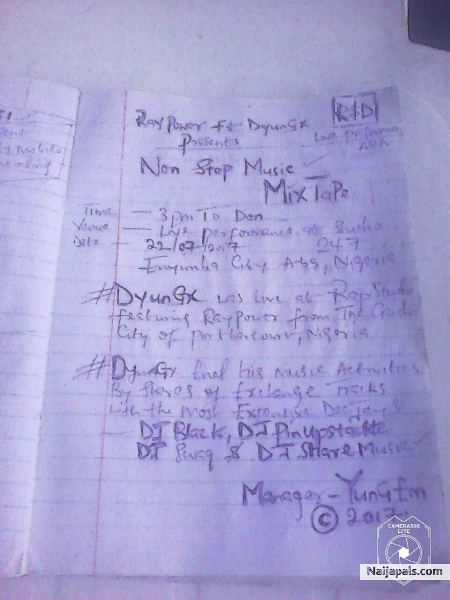 RayPower ft DyunGx
R1D
Presents
Live Performance
ABA
Non Stop Music
MixTape
Time — 3pm To Don
Venue — Live performance at Studio
Date — 22/07/2017 247
Enyimba City Aba, Nigeria
#DyunGx was live at Rap Studio
featuring RayPower from The Garden
City of portharcourt, Nigeria
#DyunGx his Music Activities
By of Exchange Tracks
with the Most Expensive Deejays
DJ Black, DJ Pinupstackte
DJ Swag & DJ Share Music
Manager - YunGfm
© 2017
CAMERA360
LITE
Naijapals.com